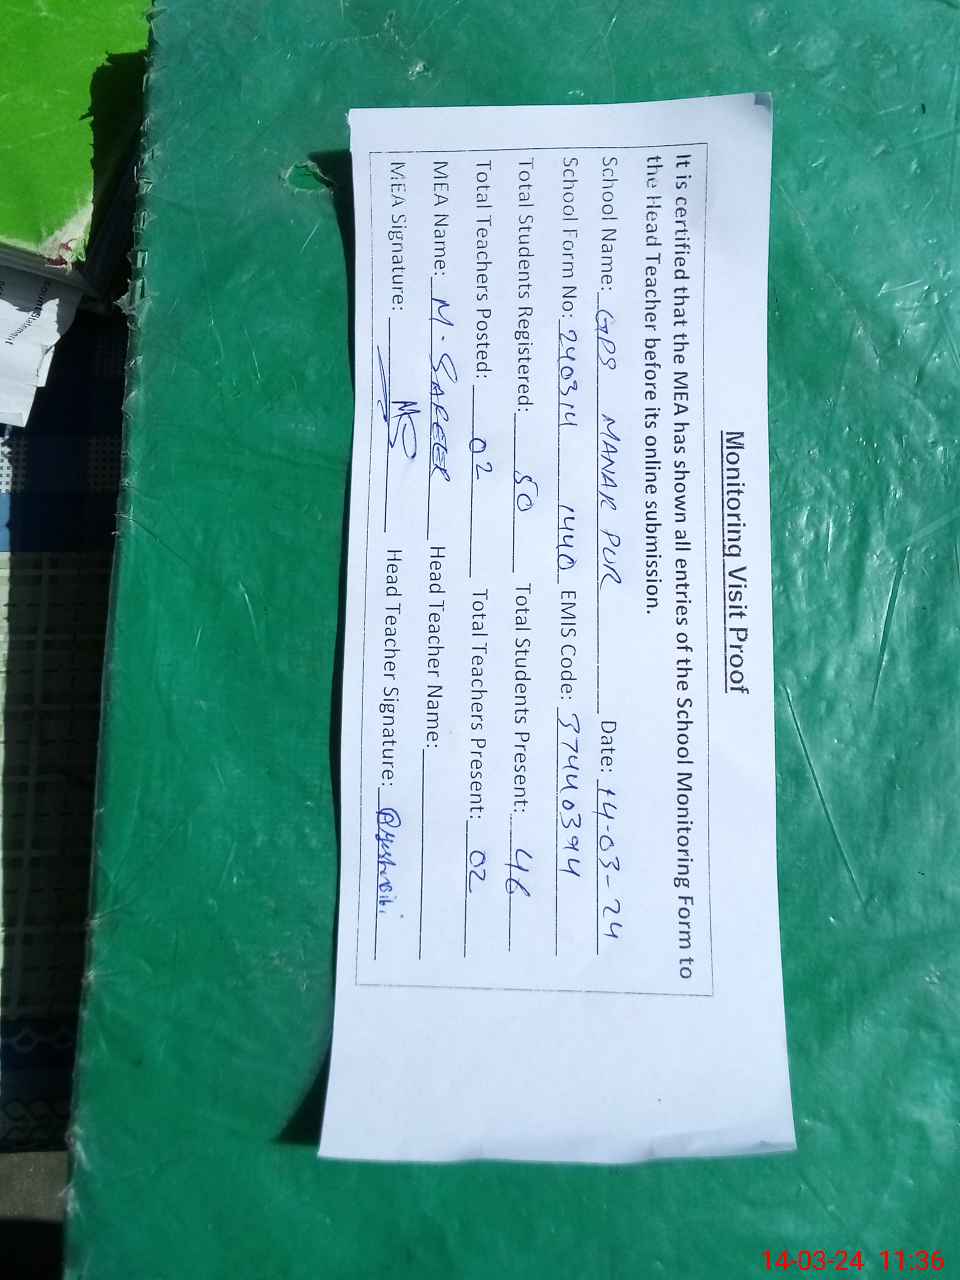 Monitoring Visit Proof
It is certified that the MEA has shown all entries of the School Monitoring Form to
the Head Teacher before its online submission.
School Name: GPS MANAK PUR Date: 14-03-24
School Form No: 240314 1440 EMIS Code: 37440394
Total Students Registered: 50 Total Students Present: 46
Total Teachers Posted: 02 Total Teachers Present: 02
MEA Name: M. SAFEER Head Teacher Name:
MEA Signature: MS Head Teacher Signature: Ayesha bibi
14-03-24 11:36